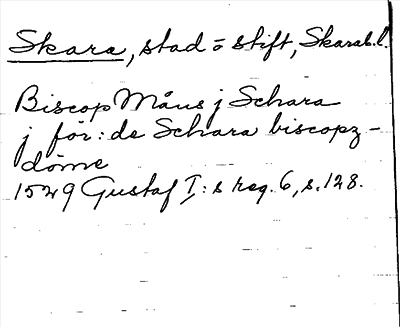 Skara, stad o stift, Skarab.l.
Biscop Måns j Schara
j för:de Schara biscopz-
döme
1529 Gustaf I:s reg. 6, s. 128.